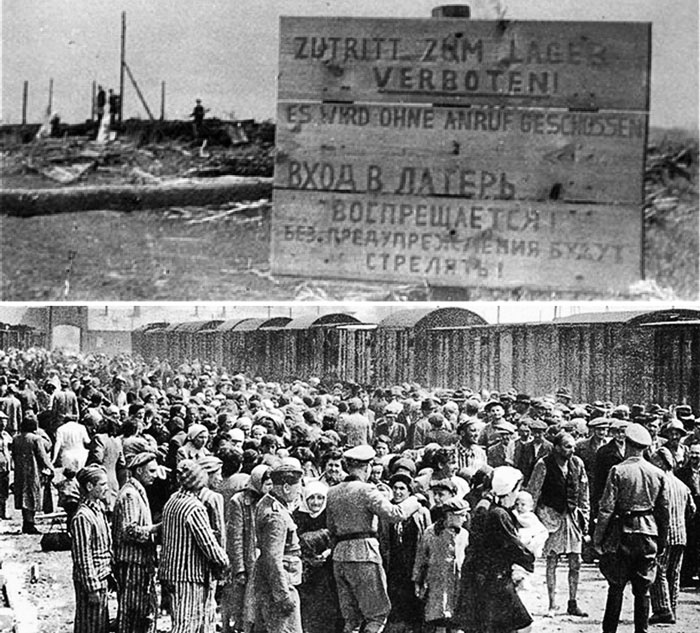 ZUTRITT ZUM LAGER
VERBOTEN!
ES WIRD OHNE ANRUF GESCHOSSEN
ВХОД В ЛАГЕРЬ
ВОСПРЕЩАЕТСЯ!
БЕЗ ПРЕДУПРЕЖДЕНИЯ БУДУТ
СТРЕЛЯТЬ!